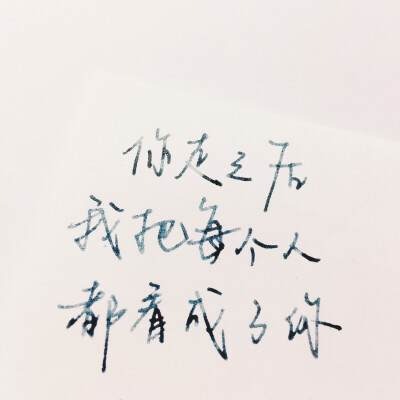 你走之后
我把每个人
都看成了你